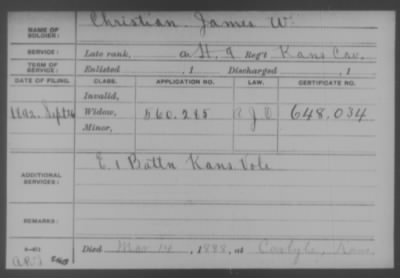 NAME OF SOLDIER: Christian James W.
SERVICE: Late rank, Regt Kans Cav.
TERM OF SERVICE: Enlisted , 1 Discharged , 1
DATE OF FILING. CLASS. APPLICATION NO. LAW. CERTIFICATE NO.
Invalid,
1892. Sept 26 Widow, 560.285 648,034
Minor,
ADDITIONAL SERVICES: E 1 Battn Kans Vols
REMARKS:
Died Mar 14, 1888, at Carlyle, Kans.